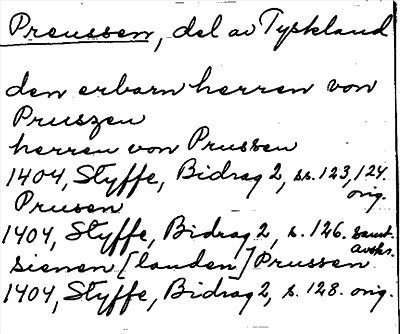 Preussen, del av Tyskland
den erbarn herren von
Pruszen
herren von Prussen
1404, Styffe, Bidrag 2, ss. 123, 124.
orig.
Prusen
1404, Styffe, Bidrag 2, s. 126. samt.
avskr.
sienen [landen] Prussen
1404, Styffe, Bidrag 2, s. 128. orig.